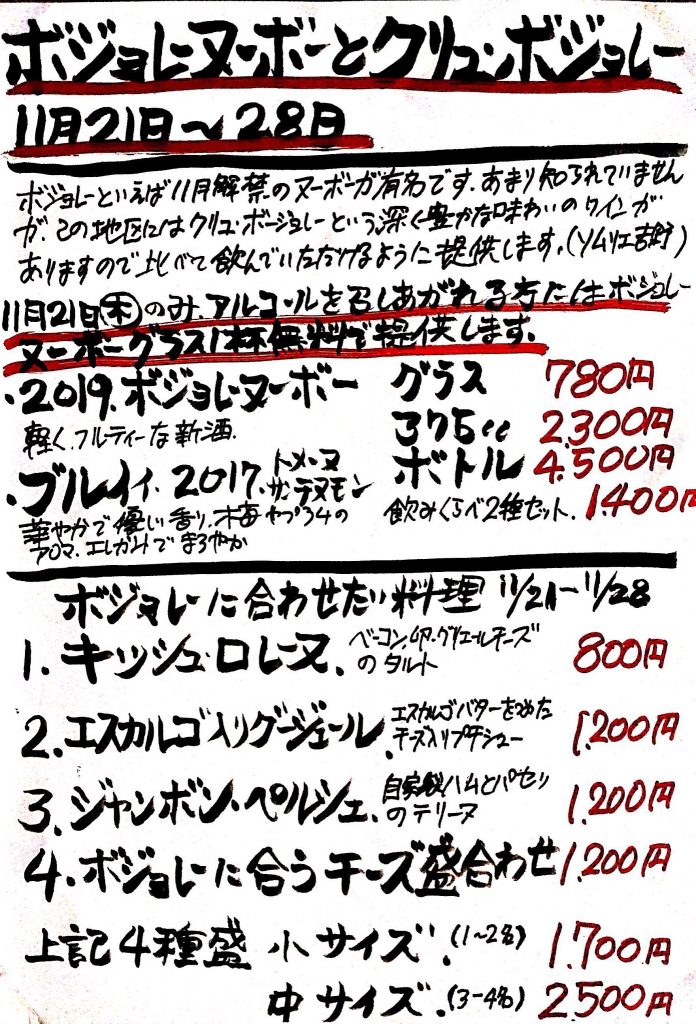 ボジョレーヌーボーとクリュ・ボジョレー
11月21日〜28日
ボジョレーといえば11月解禁のヌーボーが有名です。あまり知られていません
が、この地区にはクリュ・ボージョレーという、深く豊かな味わいのワインが
ありますので比べて飲んでいただけるように提供します。(ソムリエ吉野)
11月21日㊍のみ、アルコールを召しあがれる方にはボジョレー
ヌーボーグラス1杯無料で提供します。
・2019.ボジョレーヌーボー グラス 780円
軽く、フルーティーな新酒. 375cc 2,300円
ボトル 4,500円
・ブルイイ. 2017. トメ・ヌ
サンテヌモン
華やかで優しい香り、梅やプラムの 飲みくらべ2種セット. 1,400円
アロマ、エレガントでまろやか
ボジョレーに合わせたい料理 11/21〜11/28
1. キッシュ・ロレーヌ. ベーコン、卵、グリュイエールチーズ
のタルト 800円
2. エスカルゴ入りグージェール. エスカルゴバターをつめた
チーズ入りプチシュー 1,200円
3. ジャンボン・ペルシェ. 自家製ハムとパセリ
のテリーヌ 1,200円
4. ボジョレーに合うチーズ盛合わせ 1,200円
上記4種盛 小サイズ.(1〜2名) 1,700円
中サイズ.(3-4名) 2,500円